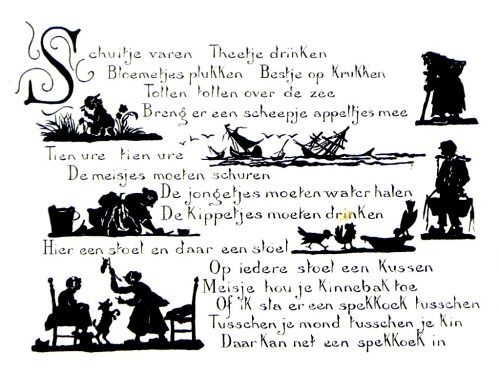 Schuitje varen Theetje drinken
Bloemetjes plukken Bestje op Krukken
Totten totten over de zee
Breng er een scheepje appeltjes mee
Tien ure tien ure
De meisjes moeten schuren
De jongetjes moeten water halen
De Kippetjes moeten drinken
Hier een stoel en daar een stoel
Op iedere stoel een Kussen
Meisje hou je Kinnebak toe
Of ik sla er een spekkoek tusschen
Tusschen je mond tusschen je kin
Daar kan net een spekkoek in